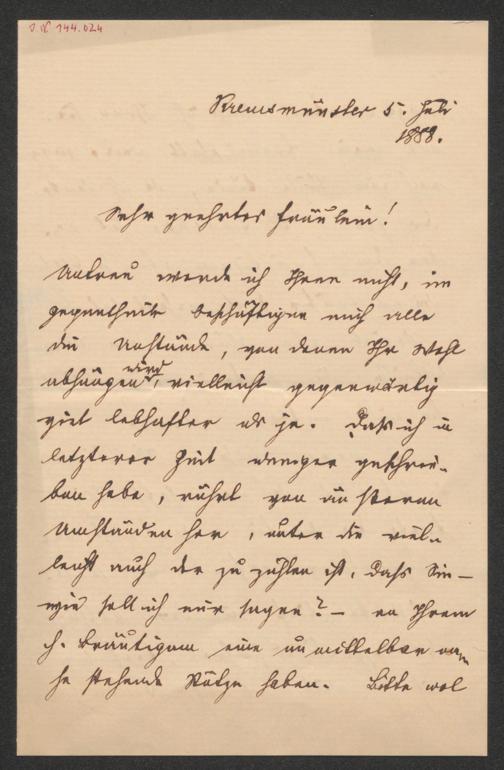 J.N. 144.024
Kremsmünster 5. Juli
1888.
Sehr geehrtes Fräulein!
Untreu werde ich Ihnen nicht, im
gegentheile beschäftigen mich alle
die Umstände, von denen Ihr Wohl
wird
abhängen, vielleicht gegenwärtig
viel lebhafter als je. Dass ich in
letzterer Zeit weniger geschrie-
ben habe, rührt von äusseren
Umständen her, unter die viel-
leicht auch der zu zählen ist, dass Sie –
wie soll ich nur sagen? – an Ihrem
h. Bräutigam eine unmittelbar na-
he stehende Stütze haben. Bitte wol